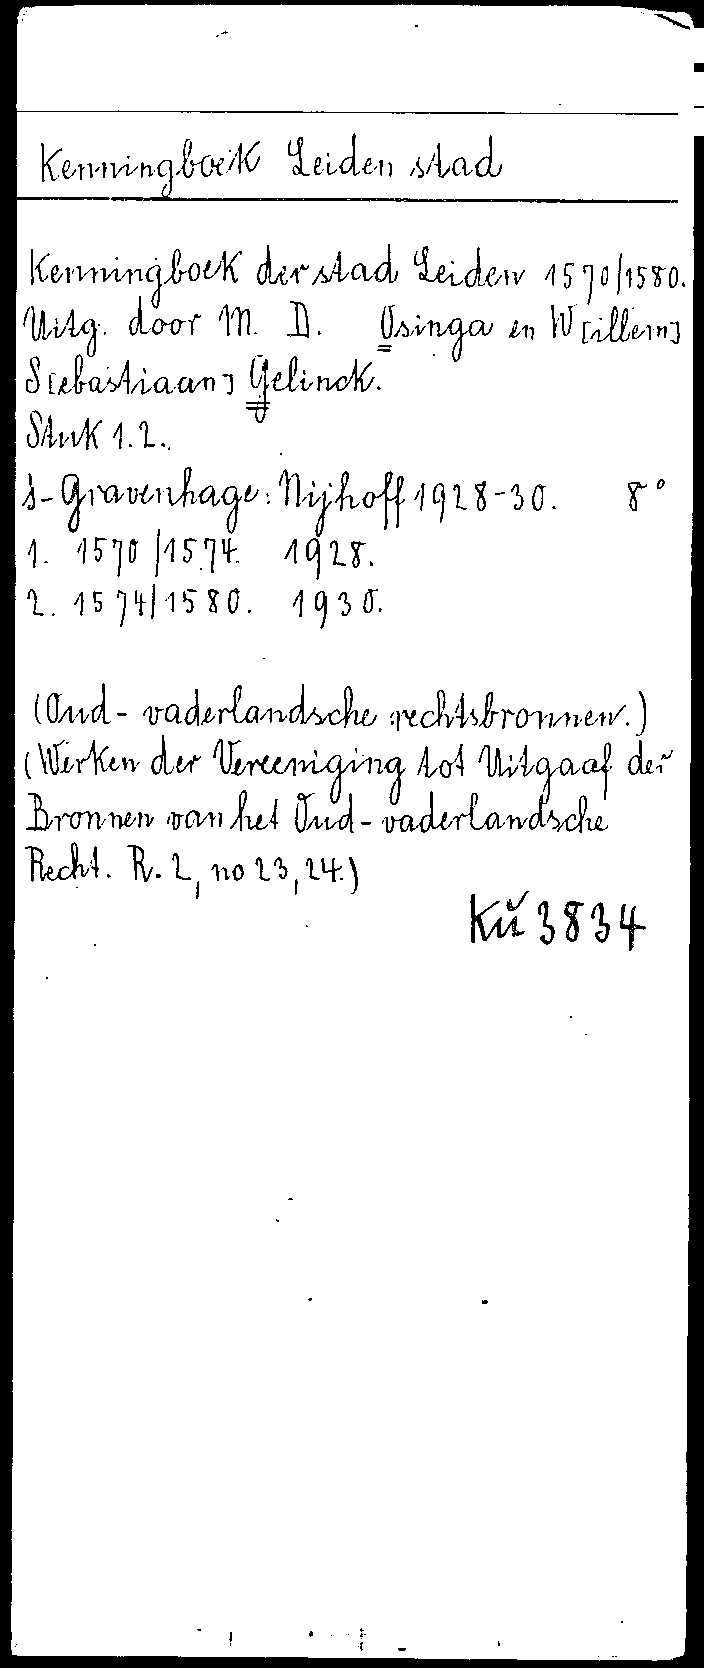 Kenningboek Leiden stad
Kenningboek der stad Leiden 1570/1580.
Uitg. door M. D. Osinga en W[illem]
S[ebastiaan] Gelinck.
Stuk 1.2.
s-Gravenhage: Nijhoff 1928-30. 8°
1. 1570/1574. 1928.
2. 1574/1580. 1930.
(Oud-vaderlandsche rechtsbronnen.)
(Werken der Vereeniging tot Uitgaaf der
Bronnen van het Oud-vaderlandsche
Recht. R. 2, no 23, 24.)
Kü 3834